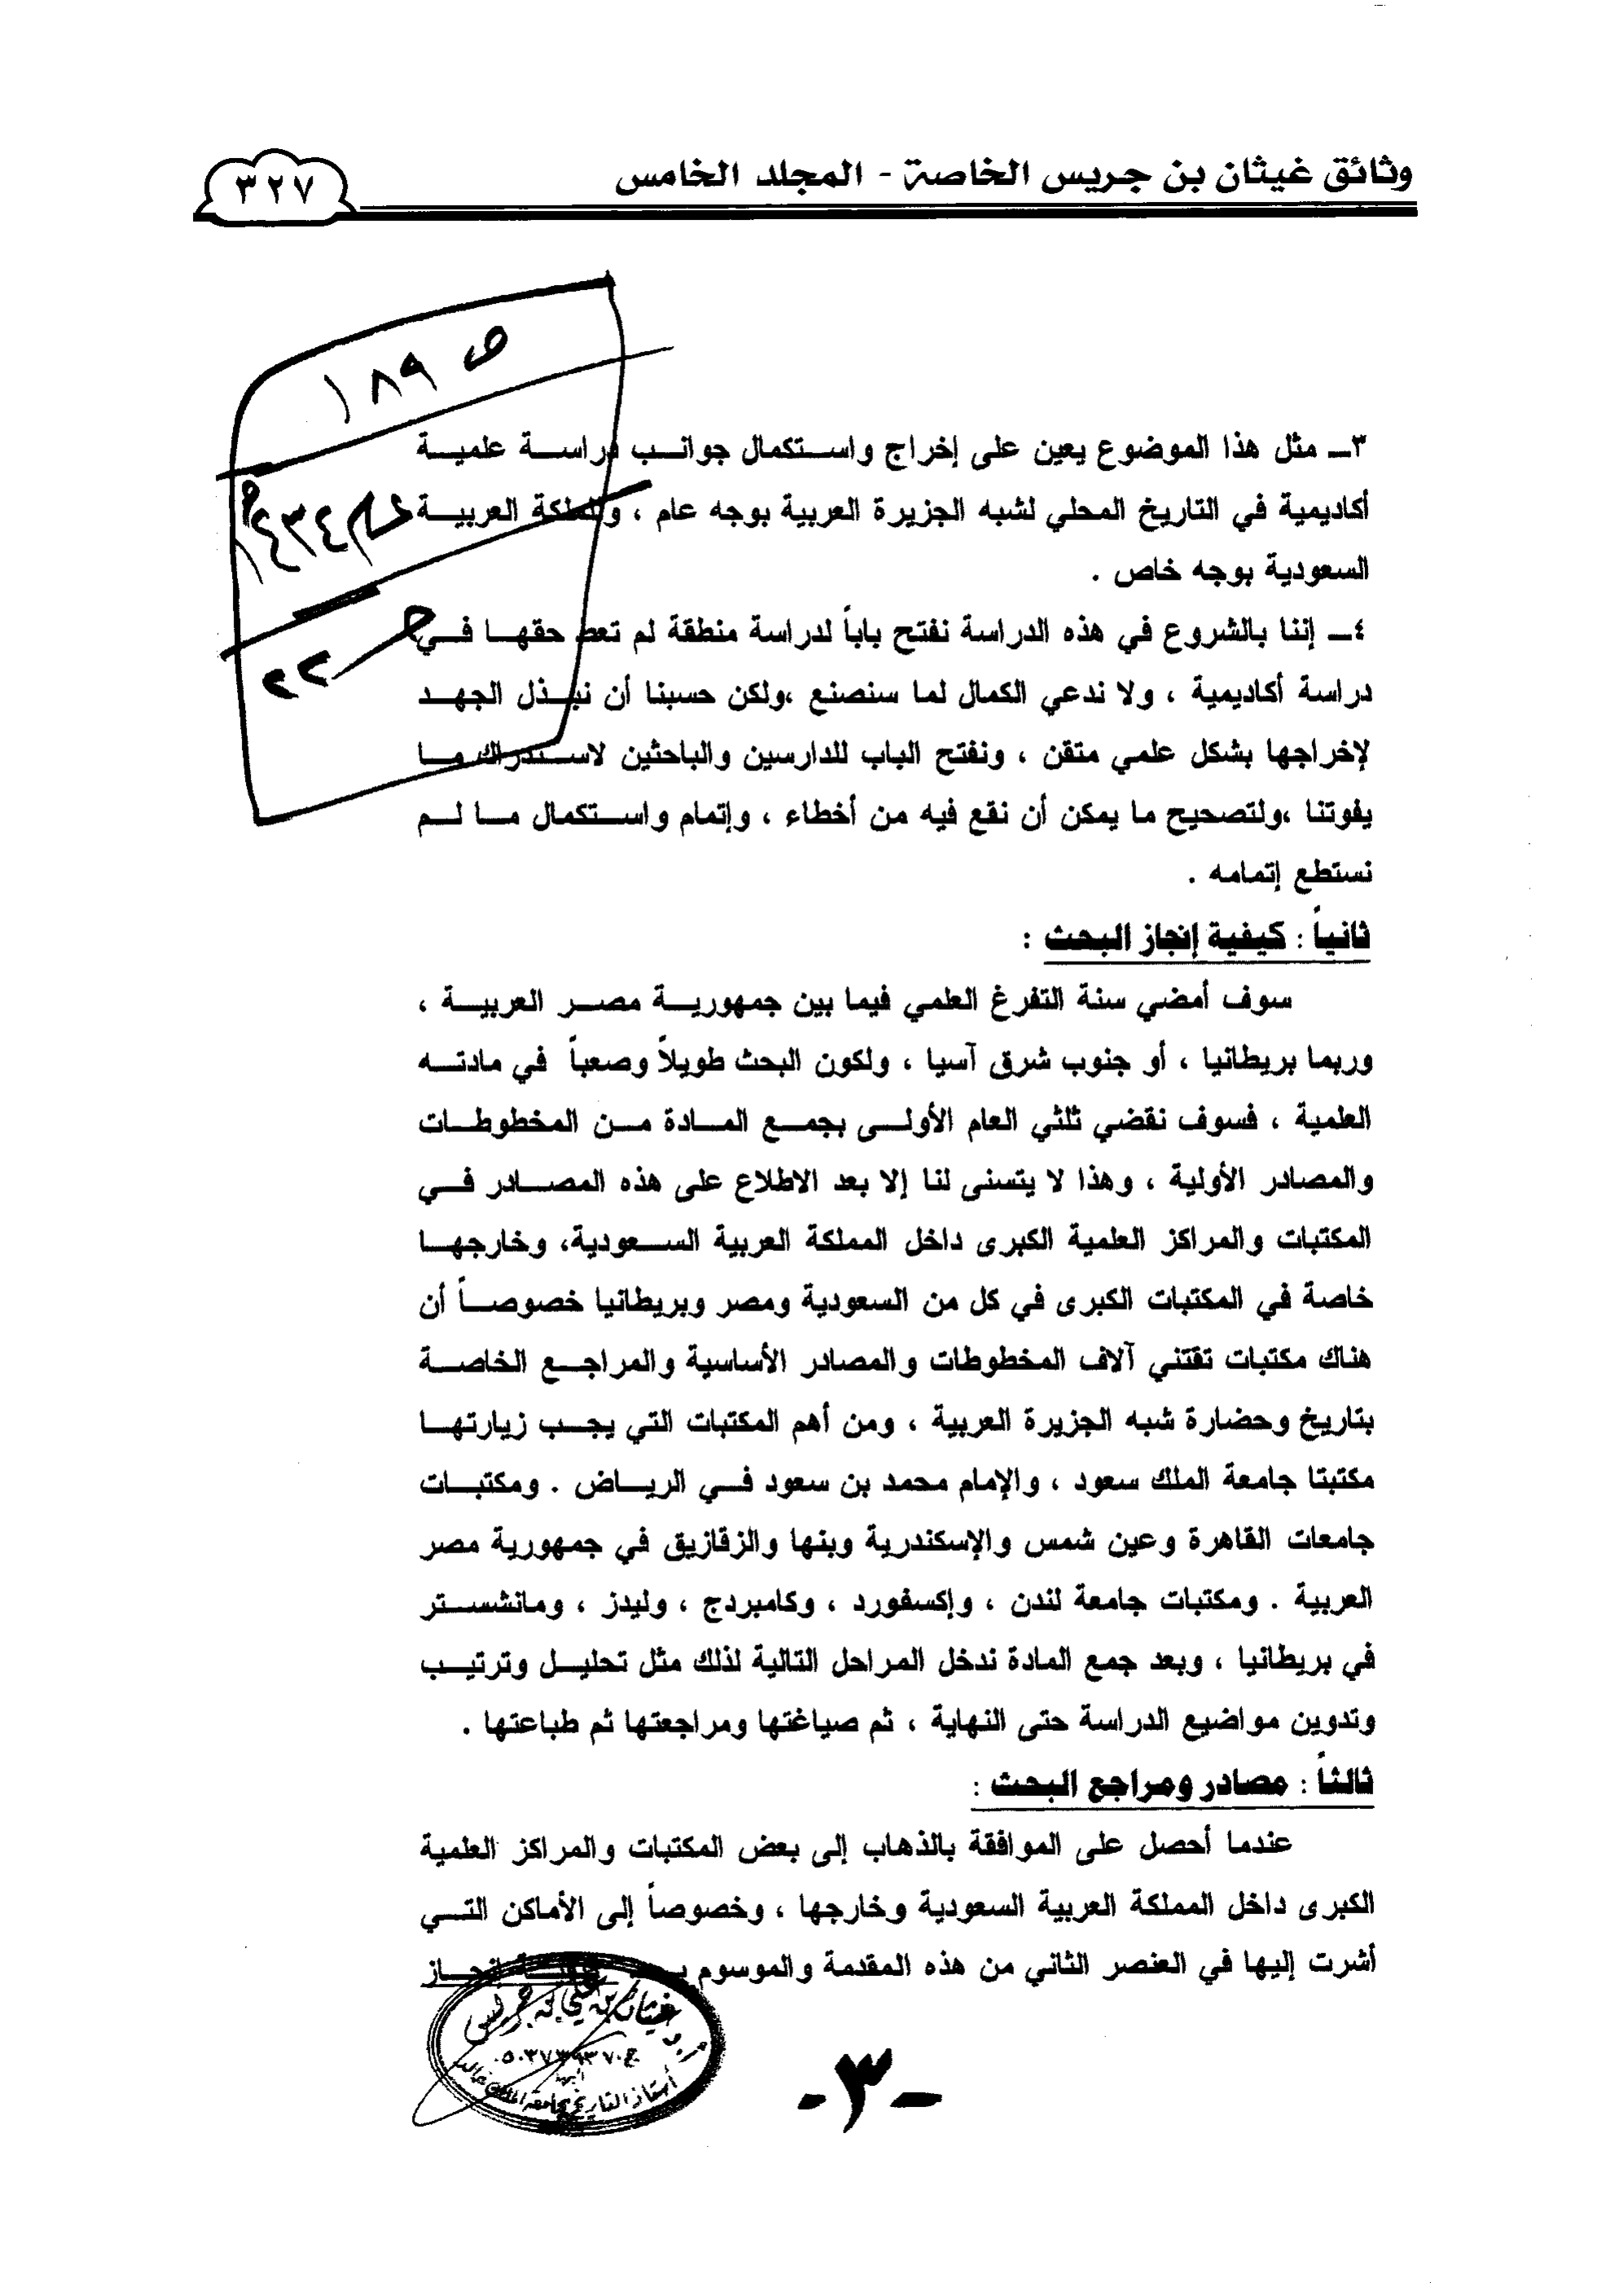 وثائق غيثان بن جريس الخاصة - المجلد الخامس
٣٢٧
ص ١٨٩
٣ـ مثل هذا الموضوع يعين على إخراج واستكمال جوانب دراسة علمية
أكاديمية في التاريخ المحلي لشبه الجزيرة العربية بوجه عام ، والمملكة العربية
السعودية بوجه خاص .
٤ـ إننا بالشروع في هذه الدراسة نفتح باباً لدراسة منطقة لم تعط حقها في
دراسة أكاديمية ، ولا ندعي الكمال لما سنصنع ،ولكن حسبنا أن نبذل الجهد
لإخراجها بشكل علمي متقن ، ونفتح الباب للدارسين والباحثين لاستدراك ما
يفوتنا ،ولتصحيح ما يمكن أن نقع فيه من أخطاء ، وإتمام واستكمال ما لم
نستطع إتمامه .
ثانياً : كيفية إنجاز البحث :
سوف أمضي سنة التفرغ العلمي فيما بين جمهورية مصر العربية ،
وربما بريطانيا ، أو جنوب شرق آسيا ، ولكون البحث طويلاً وصعباً في مادته
العلمية ، فسوف نقضي ثلثي العام الأولى بجمع المادة من المخطوطات
والمصادر الأولية ، وهذا لا يتسنى لنا إلا بعد الاطلاع على هذه المصادر في
المكتبات والمراكز العلمية الكبرى داخل المملكة العربية السعودية، وخارجها
خاصة في المكتبات الكبرى في كل من السعودية ومصر وبريطانيا خصوصاً أن
هناك مكتبات تقتني آلاف المخطوطات والمصادر الأساسية والمراجع الخاصة
بتاريخ وحضارة شبه الجزيرة العربية ، ومن أهم المكتبات التي يجب زيارتها
مكتبتا جامعة الملك سعود ، والإمام محمد بن سعود في الرياض . ومكتبات
جامعات القاهرة وعين شمس والإسكندرية وبنها والزقازيق في جمهورية مصر
العربية . ومكتبات جامعة لندن ، وإكسفورد ، وكامبردج ، وليدز ، ومانشستر
في بريطانيا ، وبعد جمع المادة ندخل المراحل التالية لذلك مثل تحليل وترتيب
وتدوين مواضيع الدراسة حتى النهاية ، ثم صياغتها ومراجعتها ثم طباعتها .
ثالثاً : مصادر ومراجع البحث :
عندما أحصل على الموافقة بالذهاب إلى بعض المكتبات والمراكز العلمية
الكبرى داخل المملكة العربية السعودية وخارجها ، وخصوصاً إلى الأماكن التي
أشرت إليها في العنصر الثاني من هذه المقدمة والموسوم إنجاز
غيثان بن علي بن جريس
أستاذ التاريخ بجامعة الملك خالد
-٣-